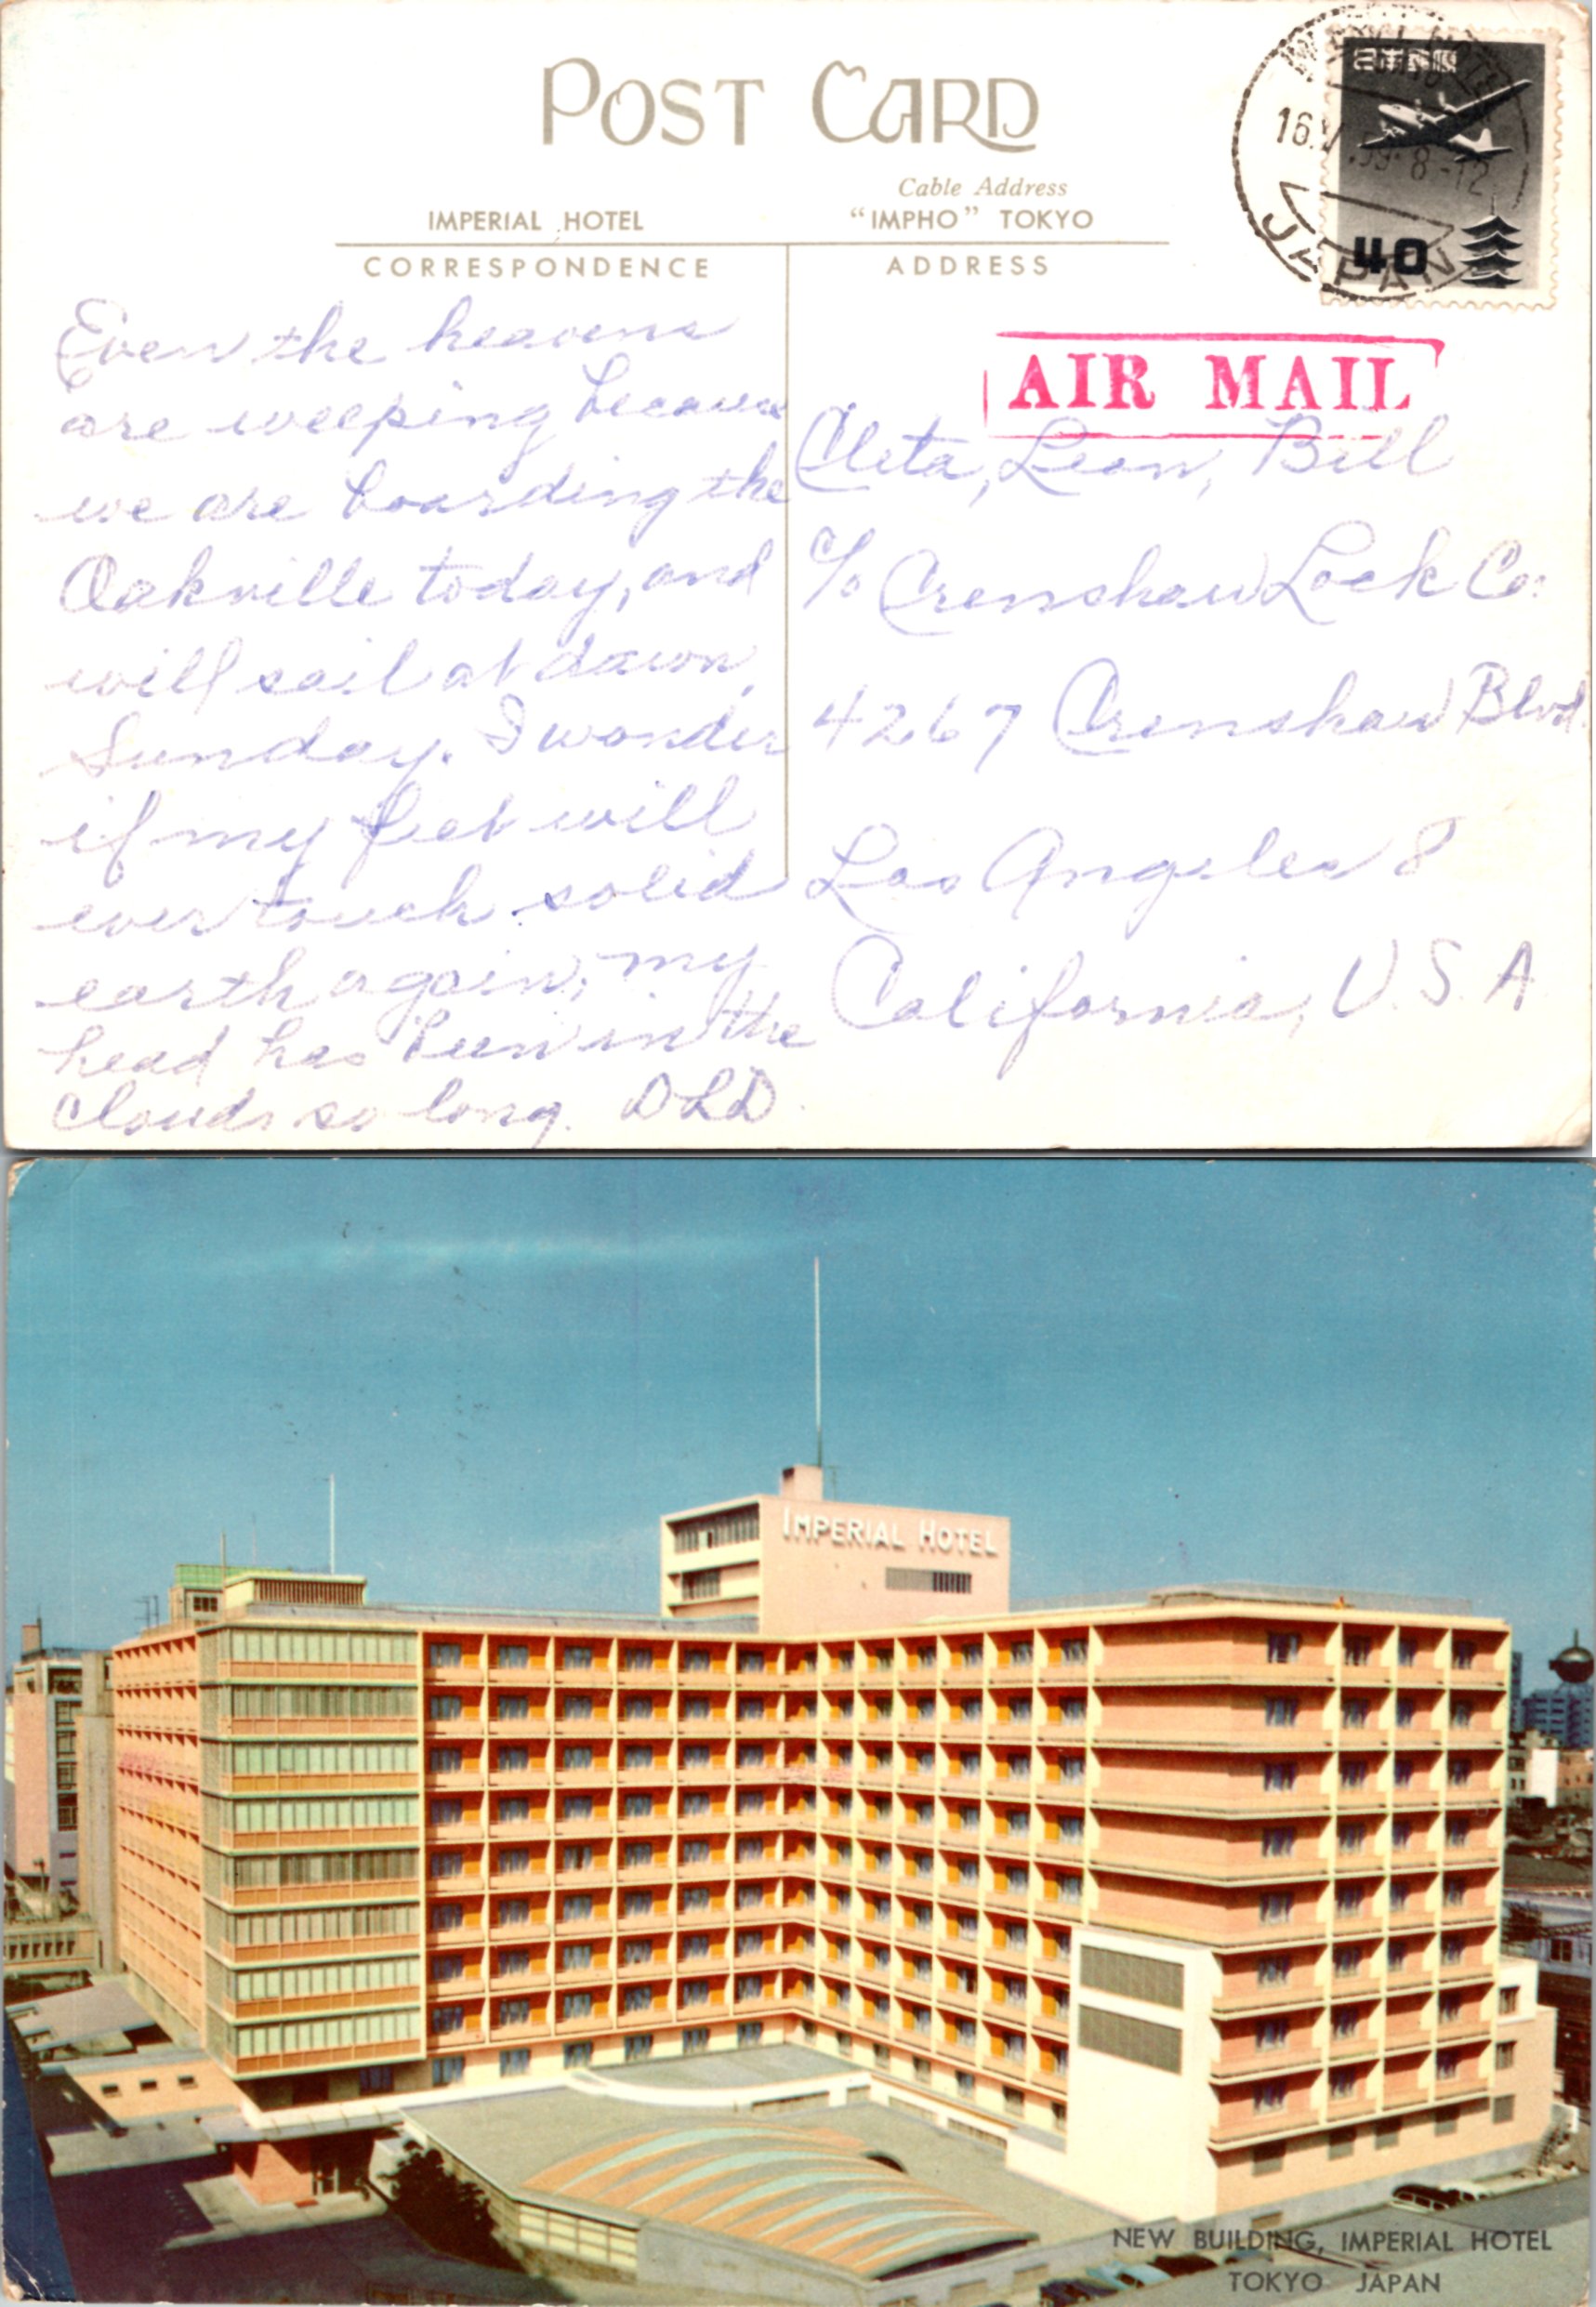 POST CARD
IMPERIAL HOTEL
Cable Address
"IMPHO" TOKYO
CORRESPONDENCE
ADDRESS
日本郵便
40
16.V.59. 8-12
JAPAN
AIR MAIL
Even the heavens
are weeping because
we are boarding the
Oakville today, and
will sail at dawn,
Sunday. I wonder
if my feet will
ever touch solid
earth again, my
head has been in the
clouds so long. DLD.
Cleta, Leon, Bill
c/o Crenshaw Lock Co.
4267 Crenshaw Blvd.
Los Angeles 8
California, U.S.A
IMPERIAL HOTEL
NEW BUILDING, IMPERIAL HOTEL
TOKYO JAPAN